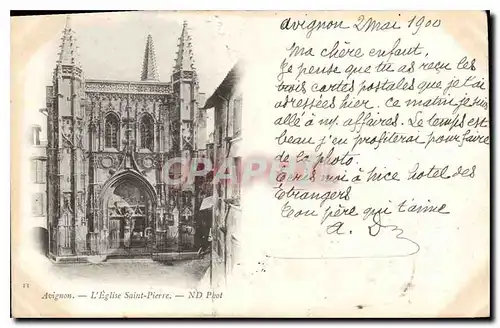 avignon 2 Mai 1900
Ma chère enfant,
Je pense que tu as reçu les
trois cartes postales que je t'ai
adressées hier. ce matin je suis
allé à mes affaires. Le temps est
beau j'en profiterai pour faire
de la photo.
Ecris moi à Nice hotel des
Etrangers
Ton père qui t'aime
A. D
CPA
11
Avignon. — L'Église Saint-Pierre. — ND Phot